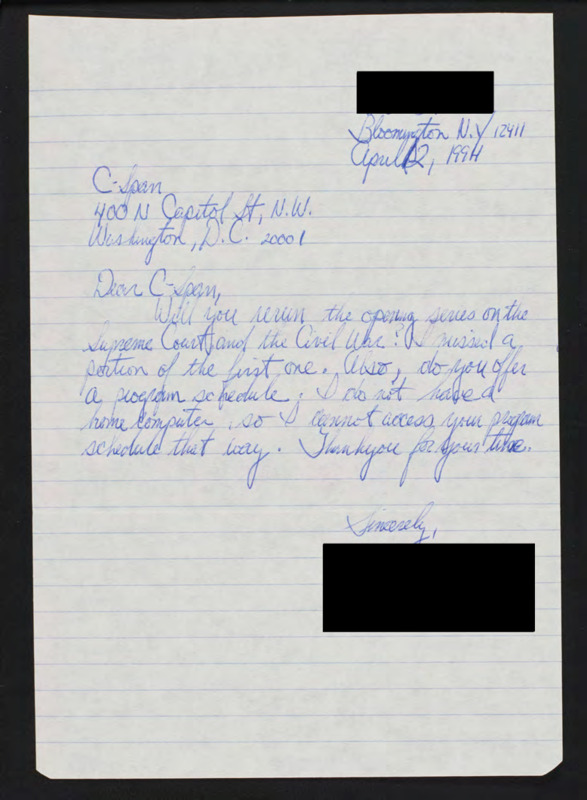 Bloomington N.Y 12411
April 12, 1994
C-Span
400 N Capitol St, N.W.
Washington, D.C. 20001
Dear C-Span,
Will you rerun the opening series on the
Supreme Court and the Civil War? I missed a
portion of the first one. Also, do you offer
a program schedule; I do not have a
home computer so I cannot access your program
schedule that way. Thankyou for your time.
Sincerely,